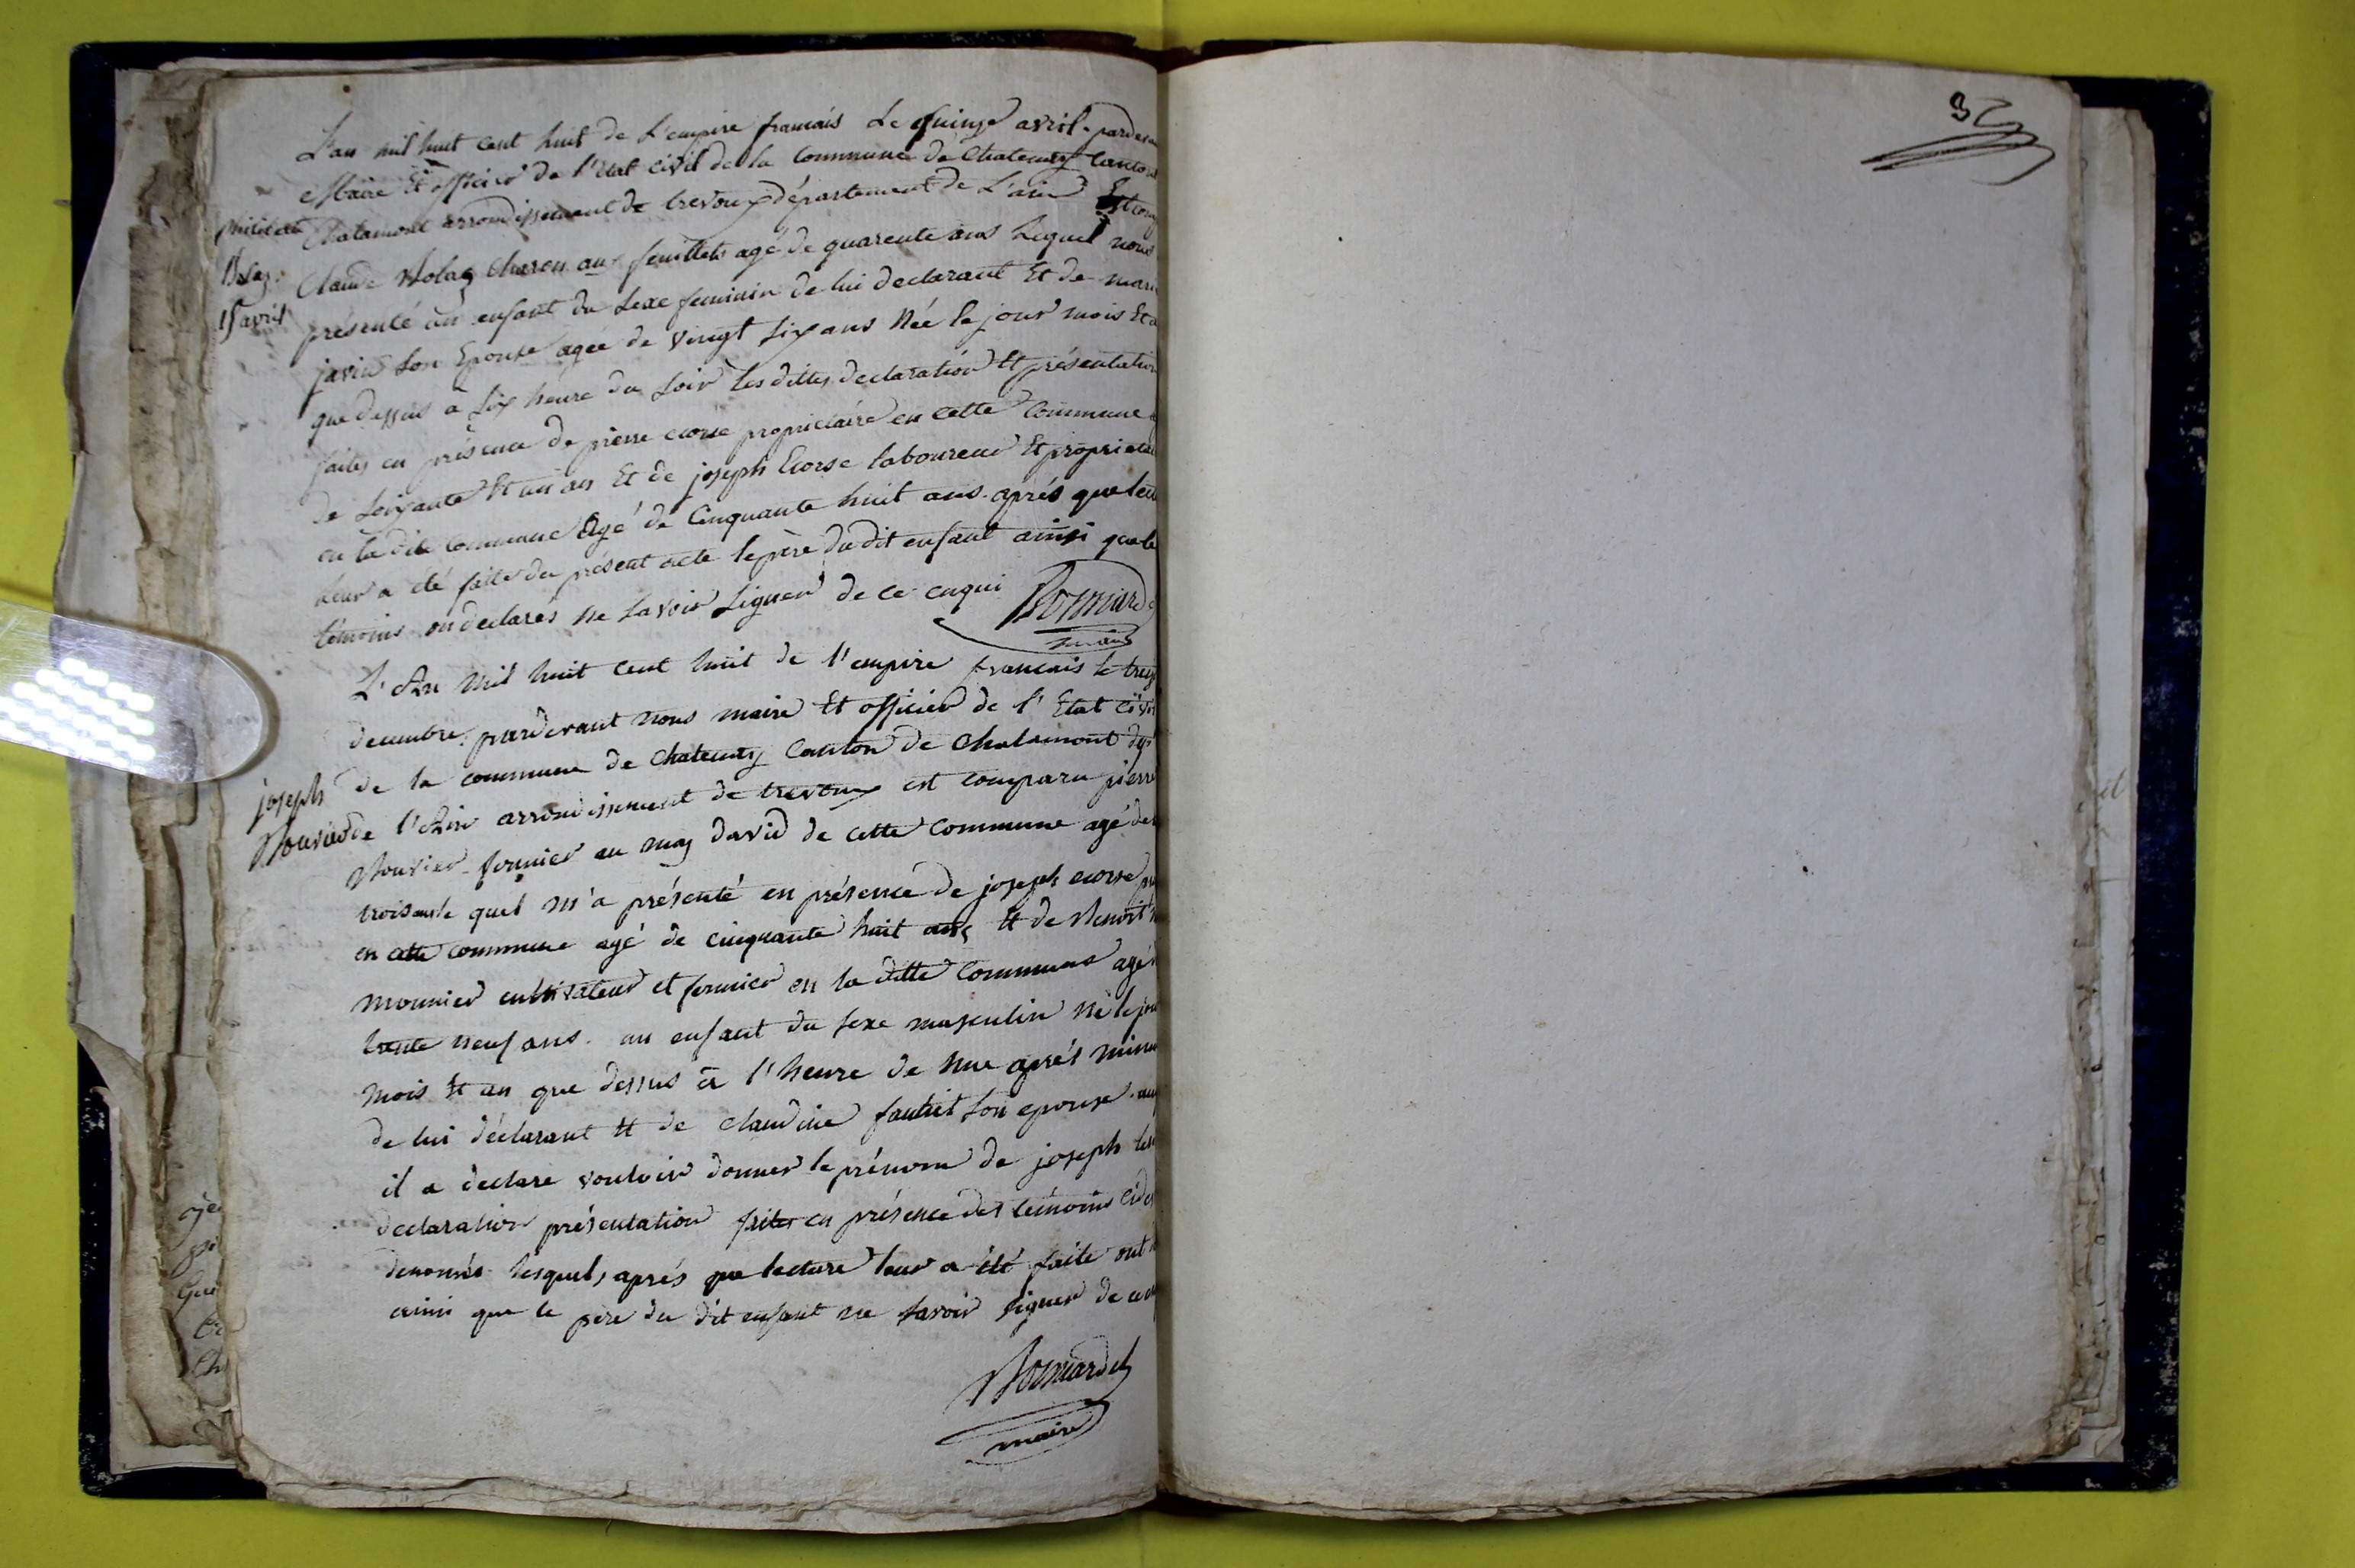 L'an mil huit cent huit de L'empire francais Le quinze avril pardeva
Maire Et officier de l'Etat civil de la Commune de Chatenay Canton
Chalamont arrondissement de trevoux département de L'ain Est com
Claude Charon au feuillets agé de quarente ans Lequel nous
15 avril
présenté un enfant du sexe feminin de lui declarant Et de mari
javin son Epouse agée de vingt six ans Née le jour mois Et a
que dessus a six heure du soir les dittes declaration Et présentation
faites en présence de pierre ecorse propriétaire en cette Commune
de soixante Et un ans Et de joseph Ecorse laboureur Et proprieta
en la dite Commune Agé de Cinquante huit ans après que lect
leur a été faite du présent acte le père du dit enfant ainsi que le
témoins on declarés ne savoir signer de ce enqui
maire
L'An mil huit cent huit de l'empire francais le treiz
decembre pardevant nous maire Et officier de l'Etat civil
joseph
de la commune de Chatenay Canton de Chalamont dep
Bouvier
de l'Ain arrondissement de trevoux est comparu pierre
Bouvier fermier au mas David de cette Commune agé de
trois ans le quel m'a présenté en présence de joseph ecorse
en cette commune agé de cinquante huit ans Et de Benoit
mounier cultivateur et fermier en la ditte Commune agé
trente neuf ans un enfant du sexe masculin né le jou
mois Et an que dessus à l'heure de une après minu
de lui déclarant Et de Claudine son epouse au
il a declare vouloir donner le prénom de joseph les
declaration présentation faites en présence des témoins ci de
denomés lesquels après que lecture leur a été faite ont
ainsi que le père du dit enfant ne savoir signer de ce
maire